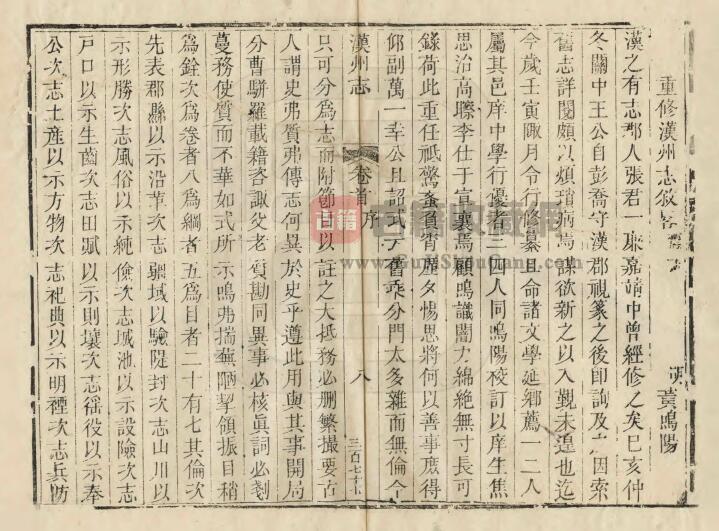 重修漢州志叙畧
明 黃鳴陽
漢之有志郡人張君一廉嘉靖中曾經修之矣巳亥仲
冬關中王公自彭喬守漢郡視篆之後即詢及 因索
舊志詳閱頗以煩瑣病焉謀欲新之以入覲未遑也迄
今歲壬寅陬月令行修纂且命諸文學延鄉薦一二人
屬其邑庠中學行優者三四人同鳴陽稜訂以庠生焦
思治高聯李仕于宣襄焉顧鳴陽識闇力綿絶無寸長可
錄荷此重任祇驚蚉負宵歷夕惕思將何以善事庶得
仰副萬一幸公且詔式云舊乘分門太多雜而無倫今
漢州志
卷首 序
八
三百七十七
只可分為志而附節目以註之大抵務必刪繁撮要古
人謂史弗質弗傳志何異於史乎遵此用與其事開局
分曹駢羅載籍咨諏父老質勘同異事必核眞詞必剗
蔓務使質而不華如式所示鳴弗揣蕪陋挈領振目稍
為銓次為卷者八為綱者五為目者二十有七其倫次
先表郡縣以示沿革次志疆域以驗隄封次志山川以
示形勝次志風俗以示純儉次志城池以示設險次志
戶口以示生齒次志田賦以示則壤次志徭役以示奉
公次志土產以示方物次志祀典以示明禋次志兵防
古籍收藏网
www.GuJiShouCang.com